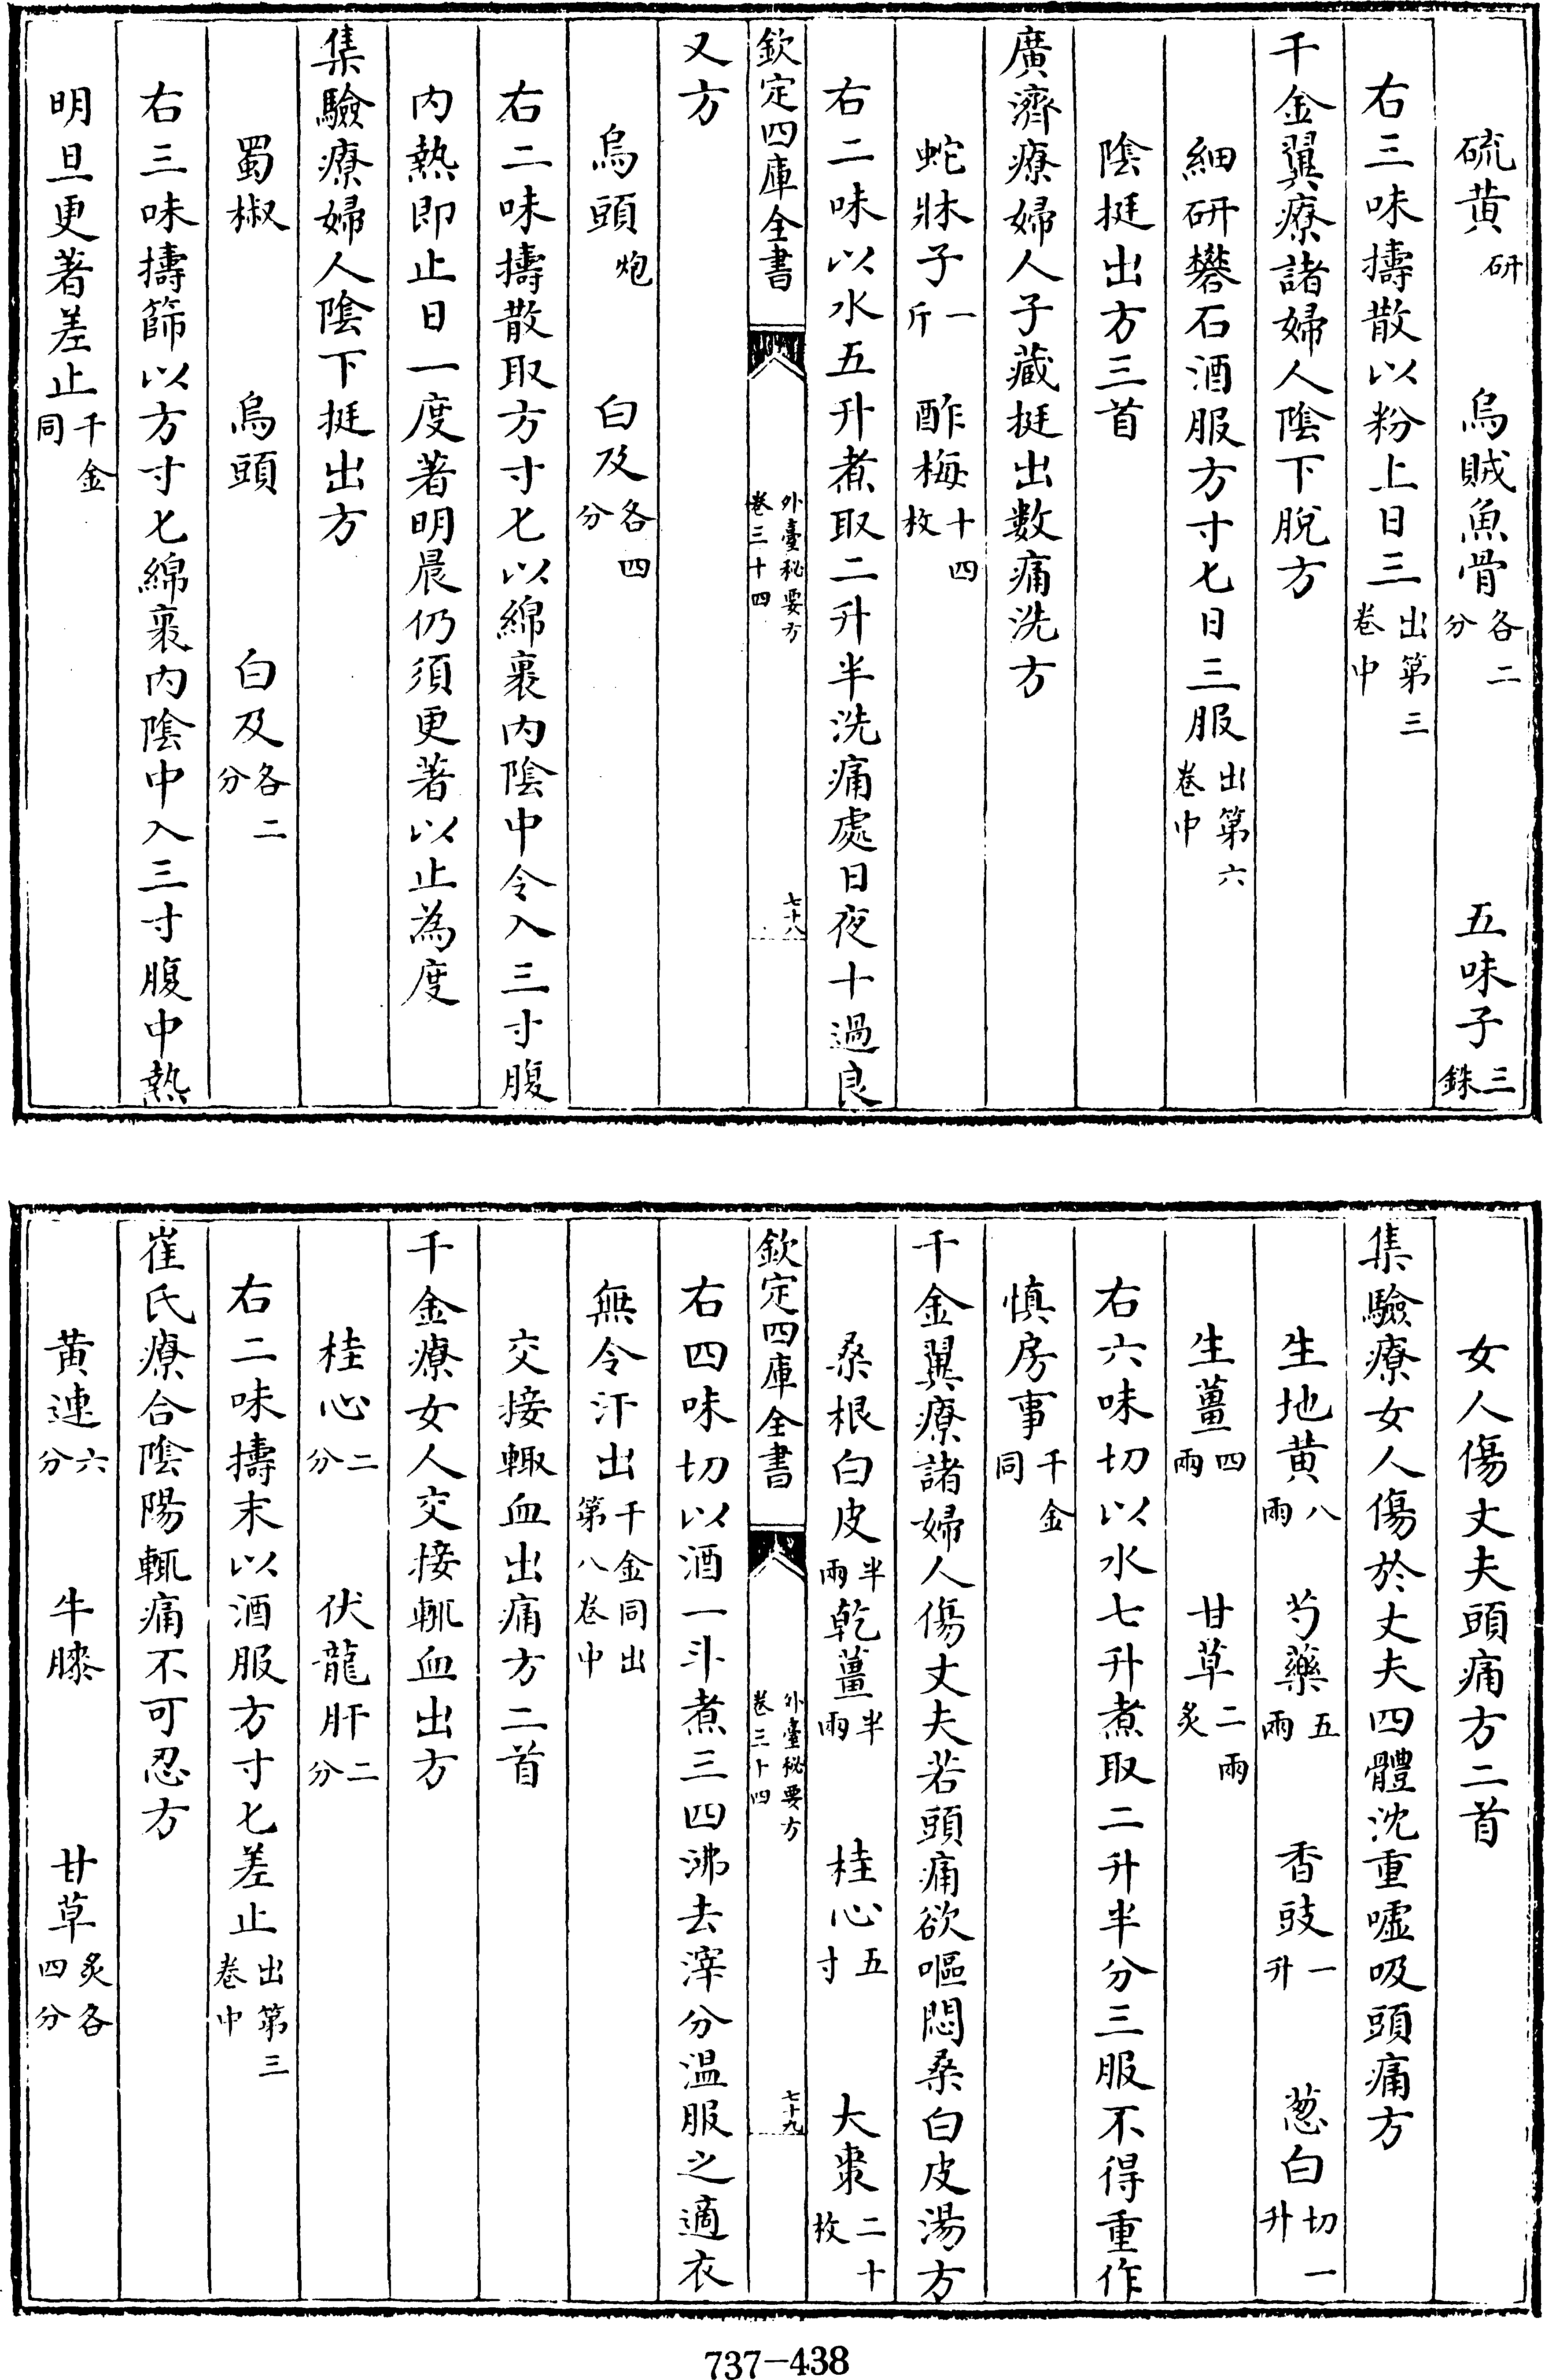 硫黄研　烏賊魚骨各二分　五味子三銖
右三味擣散以粉上日三出第三卷中
千金翼療諸婦人陰下脫方
細研礬石酒服方寸匕日三服出第六卷中
陰挺出方三首
廣濟療婦人子藏挺出數痛洗方
蛇牀子一斤　酢梅十四枚
右二味以水五升煮取二升半洗痛處日夜十過良
欽定四庫全書　外臺秘要方卷三十四　七十八
又方
烏頭炮　白及各四分
右二味擣散取方寸匕以綿裹内陰中令入三寸腹
内熱即止日一度著明晨仍須更著以止為度
集驗療婦人陰下挺出方
蜀椒　烏頭　白及各二分
右三味擣篩以方寸匕綿裹内陰中入三寸腹中熱
明旦更著差止千金同
女人傷丈夫頭痛方二首
集驗療女人傷於丈夫四體沈重嘘吸頭痛方
生地黄八兩　芍藥五兩　香豉一升　葱白切一升
生薑四兩　甘草二兩炙
右六味切以水七升煮取二升半分三服不得重作
慎房事千金同
千金翼療諸婦人傷丈夫若頭痛欲嘔悶桑白皮湯方
桑根白皮半兩　乾薑半兩　桂心五寸　大棗二十枚
欽定四庫全書　外臺秘要方卷三十四　七十九
右四味切以酒一斗煮三四沸去滓分温服之適衣
無令汗出千金同出第八卷中
交接輙血出痛方二首
千金療女人交接輙血出方
桂心二分　伏龍肝二分
右二味擣末以酒服方寸匕差止出第三卷中
崔氏療合陰陽輒痛不可忍方
黄連六分　牛膝　甘草炙各四分
737-438